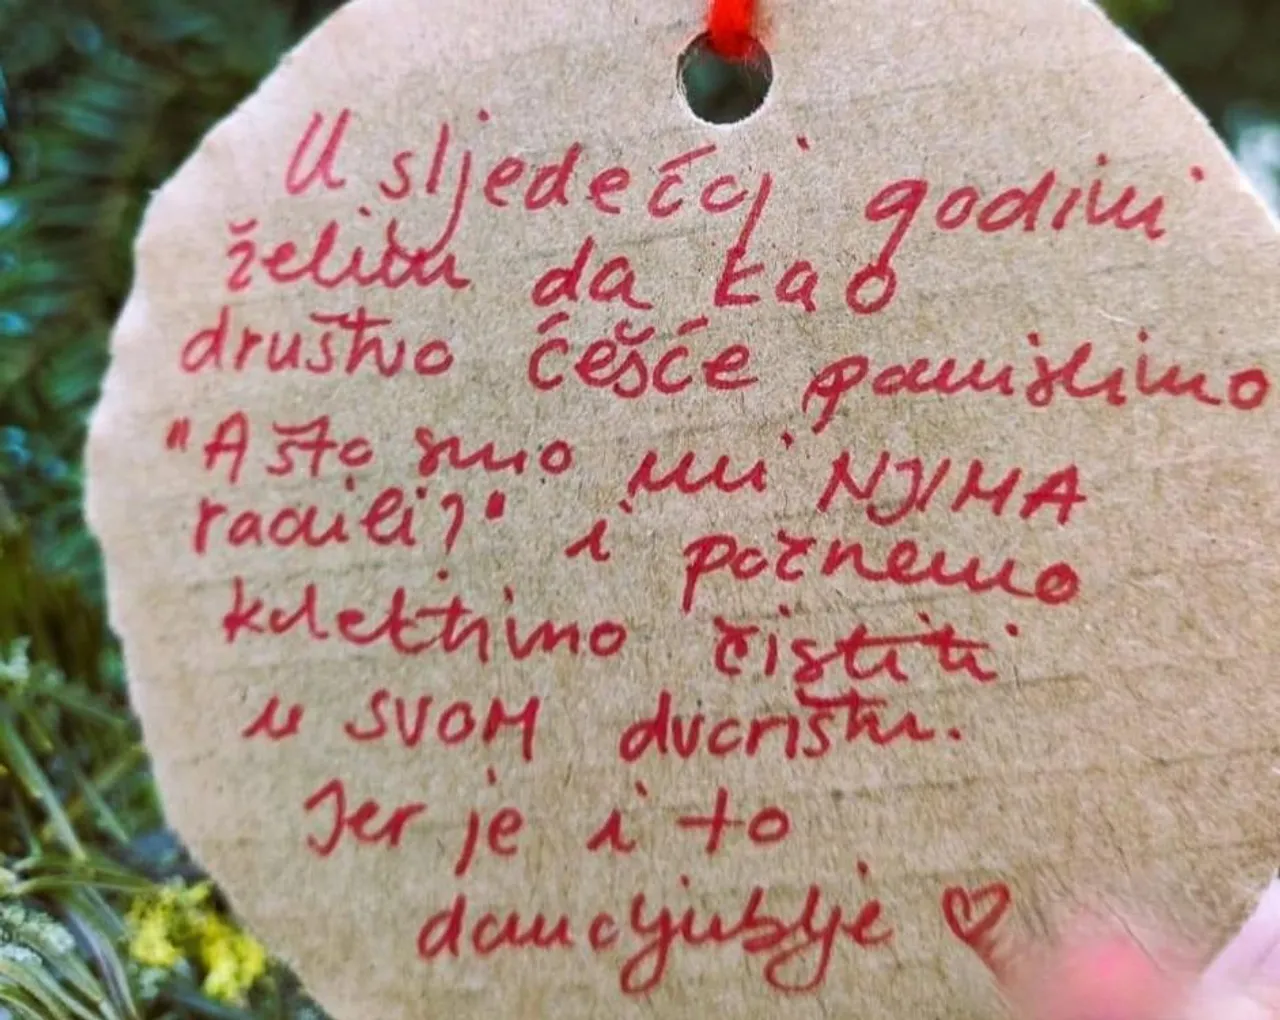 U sljedećoj godini
želim da kao
društvo češće pomislimo
"A što smo mi NJIMA
radili?" i počnemo
kolektivno čistiti
u SVOM dvorištu.
Jer je i to
domoljublje ♡